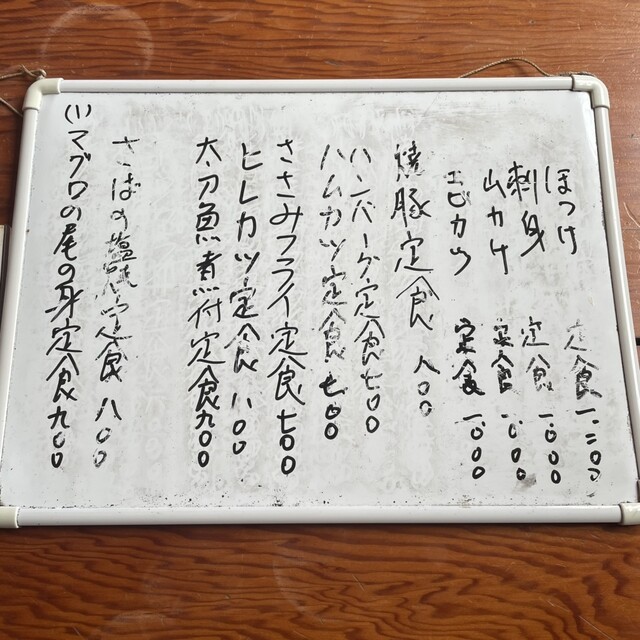 ほっけ定食 一.二〇〇
刺身定食 一.〇〇〇
山かけ定食 一.〇〇〇
エビカツ定食 一.〇〇〇
焼豚定食 八〇〇
ハンバーグ定食 七〇〇
ハムカツ定食 七〇〇
ささみフライ定食 七〇〇
ヒレカツ定食 八〇〇
太刀魚煮付定食 九〇〇
さばの塩焼定食 八〇〇
(1)マグロの尾の身定食 九〇〇